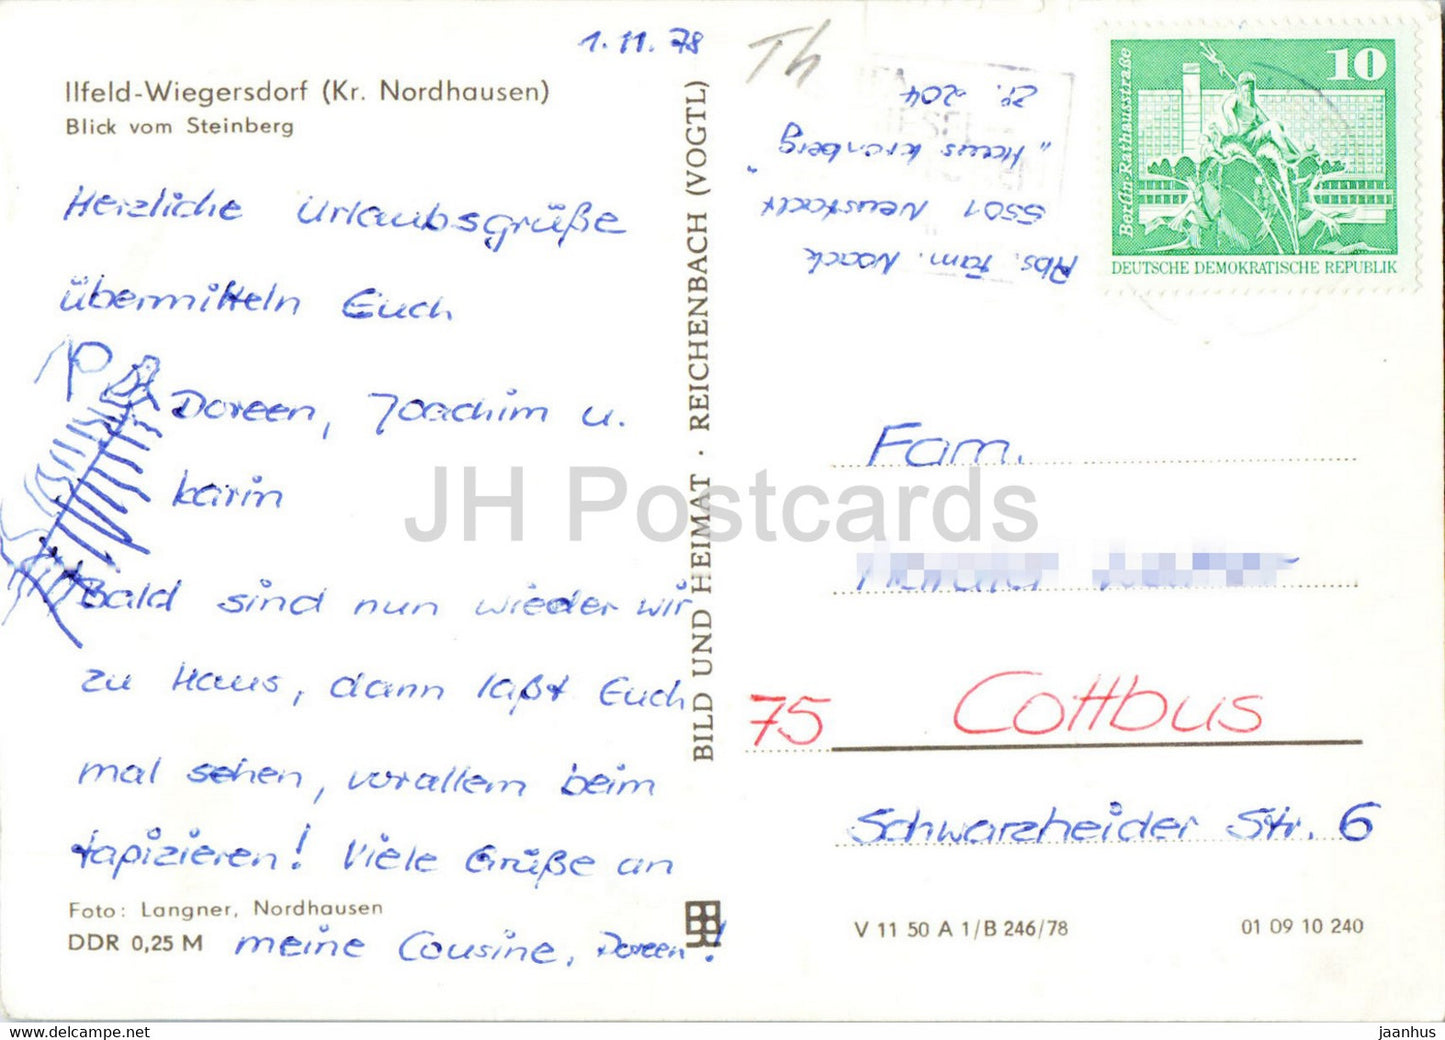 1.11.78
Ilfeld-Wiegersdorf (Kr. Nordhausen)
Blick vom Steinberg
Herzliche Urlaubsgrüße
übermitteln Euch
Doreen, Joachim u.
Karin
Bald sind nun wieder wir
zu Haus, dann laßt Euch
mal sehen, vorallem beim
tapizieren! Viele Grüße an
meine Cousine, Doreen!
Foto: Langner, Nordhausen
DDR 0,25 M
BILD UND HEIMAT · REICHENBACH (VOGTL)
Th
Abs. Fam. Noack
5501 Neustadt
"Haus Kronberg"
Zi. 204
10
Berlin-Rathausstraße
DEUTSCHE DEMOKRATISCHE REPUBLIK
Fam.
75 Cottbus
Schwarzheider Str. 6
V 11 50 A 1/B 246/78
01 09 10 240
JH Postcards
jaanhus
www.delcampe.net